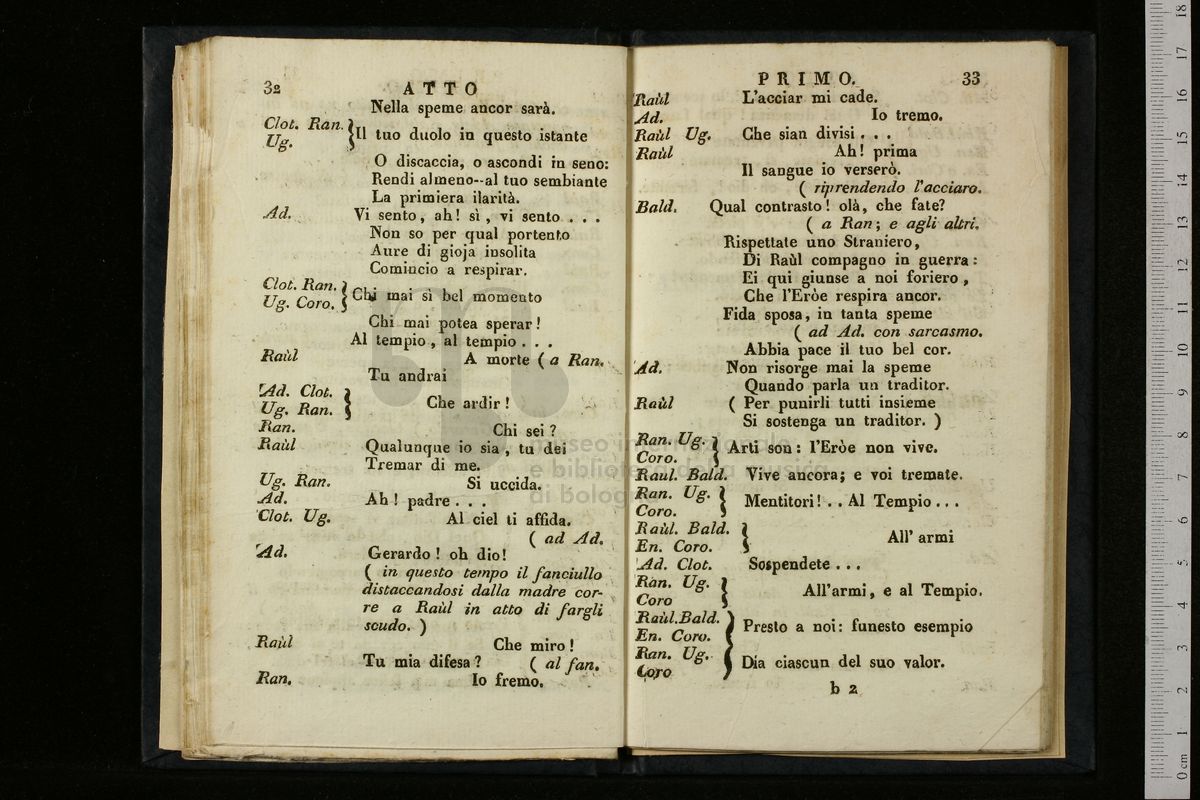 32 ATTO
Nella speme ancor sarà.
Clot. Ran. } Il tuo duolo in questo istante
Ug.
O discaccia, o ascondi in seno:
Rendi almeno--al tuo sembiante
La primiera ilarità.
Ad. Vi sento, ah! sì, vi sento . . .
Non so per qual portento
Aure di gioja insolita
Comincio a respirar.
Clot. Ran. } Chi mai sì bel momento
Ug. Coro.
Chi mai potea sperar!
Al tempio, al tempio . . .
Raùl A morte ( a Ran.
Tu andrai
Ad. Clot. } Che ardir!
Ug. Ran.
Ran. Chi sei?
Raùl Qualunque io sia, tu dei
Tremar di me.
Ug. Ran. Si uccida.
Ad. Ah! padre . . .
Clot. Ug. Al ciel ti affida.
( ad Ad.
Ad. Gerardo! oh dio!
( in questo tempo il fanciullo
distaccandosi dalla madre cor-
re a Raùl in atto di fargli
scudo. )
Raùl Che miro!
Tu mia difesa? ( al fan.
Ran. Io fremo.
PRIMO. 33
Raùl L'acciar mi cade.
Ad. Io tremo.
Raùl Ug. Che sian divisi . . .
Raùl Ah! prima
Il sangue io verserò.
( riprendendo l'acciaro.
Bald. Qual contrasto! olà, che fate?
( a Ran; e agli altri.
Rispettate uno Straniero,
Di Raùl compagno in guerra:
Ei qui giunse a noi foriero,
Che l'Eròe respira ancor.
Fida sposa, in tanta speme
( ad Ad. con sarcasmo.
Abbia pace il tuo bel cor.
Ad. Non risorge mai la speme
Quando parla un traditor.
Raùl ( Per punirli tutti insieme
Si sostenga un traditor. )
Ran. Ug. } Arti son: l'Eròe non vive.
Coro.
Raul. Bald. Vive ancora; e voi tremate.
Ran. Ug. } Mentitori! . . Al Tempio . . .
Coro.
Raùl. Bald. } All' armi
En. Coro.
Ad. Clot. Sospendete . . .
Ran. Ug. } All'armi, e al Tempio.
Coro
Raùl.Bald. } Presto a noi: funesto esempio
En. Coro.
Ran. Ug. } Dia ciascun del suo valor.
Coro
b 2
museo internazionale
e biblioteca della musica
di bologna
0 cm 1 2 3 4 5 6 7 8 9 10 11 12 13 14 15 16 17 18